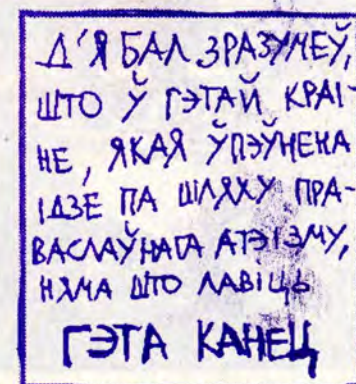 Д'ЯБАЛ ЗРАЗУМЕЎ,
ШТО Ў ГЭТАЙ КРАІ-
НЕ, ЯКАЯ ЎПЭЎНЕНА
ІДЗЕ ПА ШЛЯХУ ПРА-
ВАСЛАЎНАГА АТЭІЗМУ,
НЯМА ШТО ЛАВІЦЬ
ГЭТА КАНЕЦ